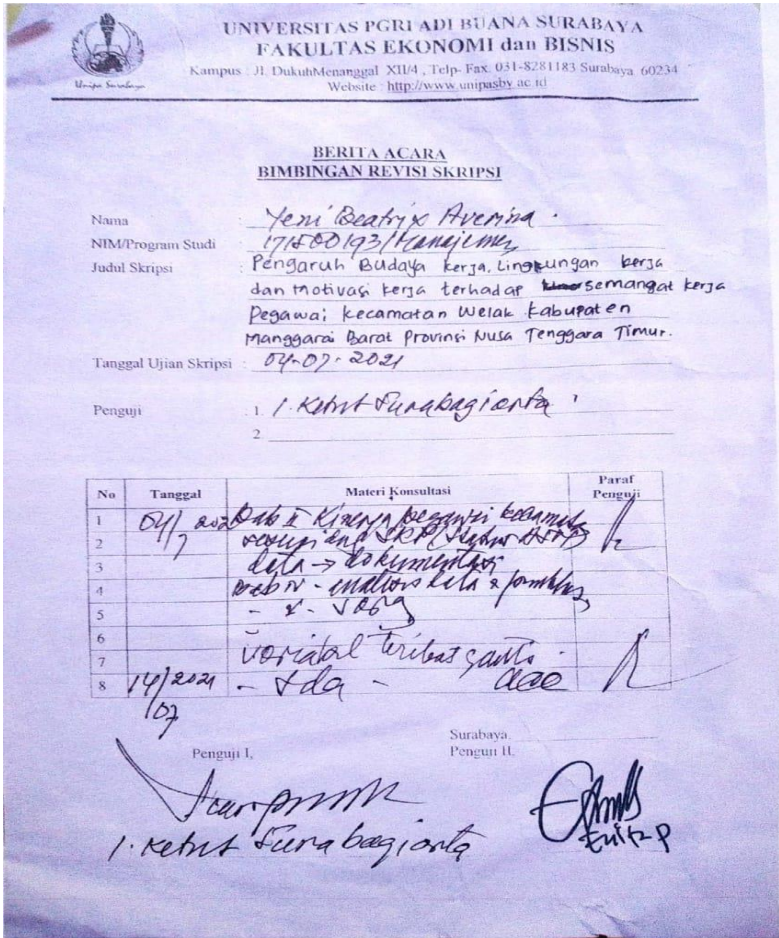 UNIVERSITAS PGRI ADI BUANA SURABAYA
FAKULTAS EKONOMI dan BISNIS
Kampus : Jl. DukuhMenanggal XII/4 , Telp- Fax. 031-8281183 Surabaya 60234
Website : http://www.unipasby.ac.id
Unipa Surabaya
BERITA ACARA
BIMBINGAN REVISI SKRIPSI
Nama : Yeni Beatrix Averina
NIM/Program Studi : 171500193/Manajemen
Judul Skripsi : Pengaruh Budaya kerja, Lingkungan kerja
dan Motivasi kerja terhadap semangat kerja
Pegawai Kecamatan Welak Kabupaten
Manggarai Barat Provinsi Nusa Tenggara Timur.
Tanggal Ujian Skripsi : 04-07-2021
Penguji : 1. I. Ketut Surabagiarta
2.
No Tanggal Materi Konsultasi Paraf Penguji
1 04/7 Bab II Kinerja pegawai
2 SKP
3 data → dokumentasi
4 bab IV - analisis data
5
6
7 variabel terikat ganti.
8 14/2021 - sda - acc
/07
Surabaya,
Penguji I, Penguji II,
I. Ketut Surabagiarta